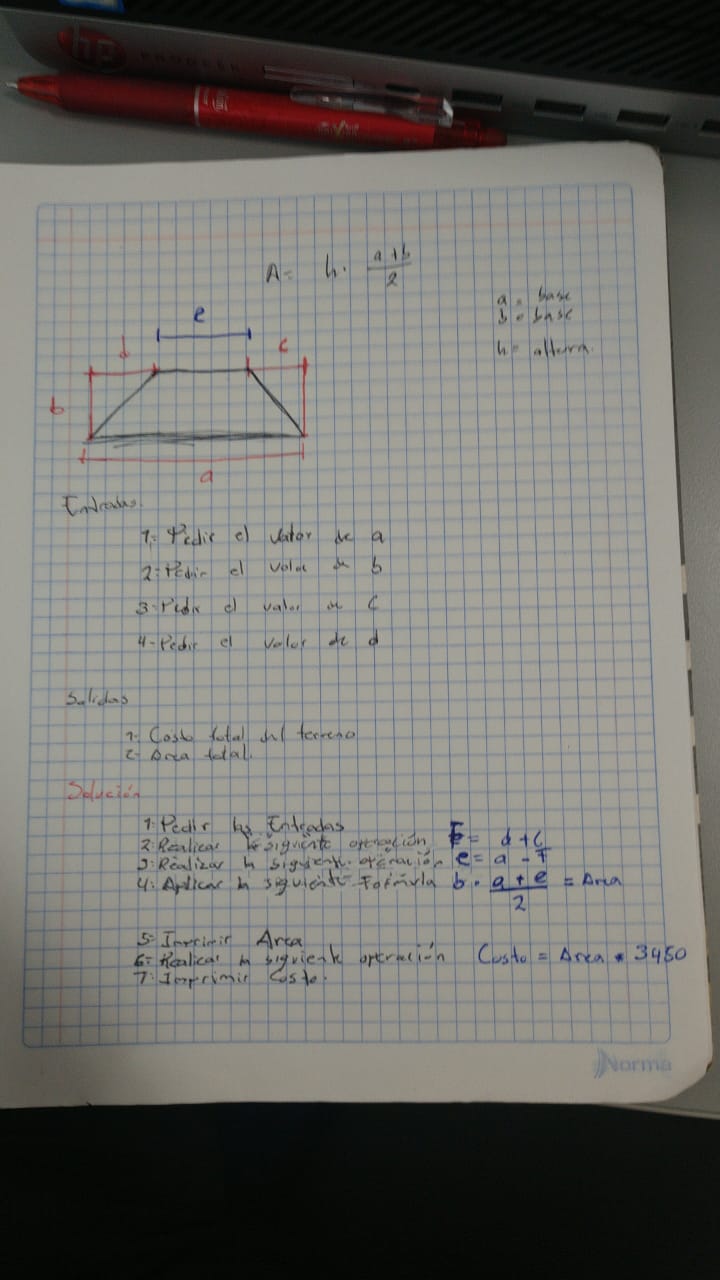 hp PROBOOK
A = h · a+b
2
a = base
b = base
h = altura.
e
d
c
b
a
Entradas.
1- Pedir el valor de a
2- Pedir el valor de b
3- Pedir el valor de c
4- Pedir el valor de d
Salidas
1- Costo total del terreno
2- Area total.
Solución
1- Pedir las Entradas
2- Realizar la siguiente operación F = d + c
3- Realizar la siguiente operación e = a - F
4- Aplicar la siguiente Formula b · a + e = Area
2
5- Imprimir Area
6- Realizar la siguiente operación Costo = Area * 3450
7- Imprimir Costo.
Norma